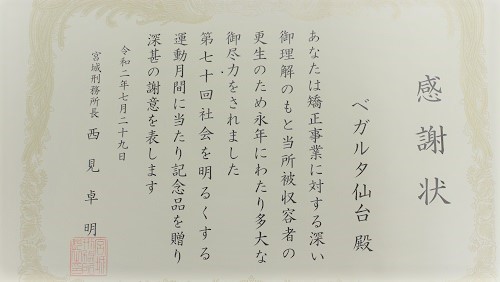 感謝状
ベガルタ仙台 殿
あなたは矯正事業に対する深い
御理解のもと当所被収容者の
更生のため永年にわたり多大な
御尽力をされました
第七十回社会を明るくする
運動月間に当たり記念品を贈り
深甚の謝意を表します
令和二年七月二十九日
宮城刑務所長 西見卓明